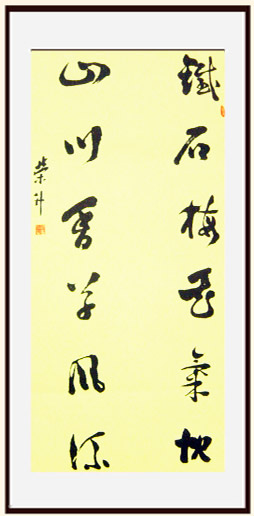 鐵石梅花氣概
山川香草风流
荣升